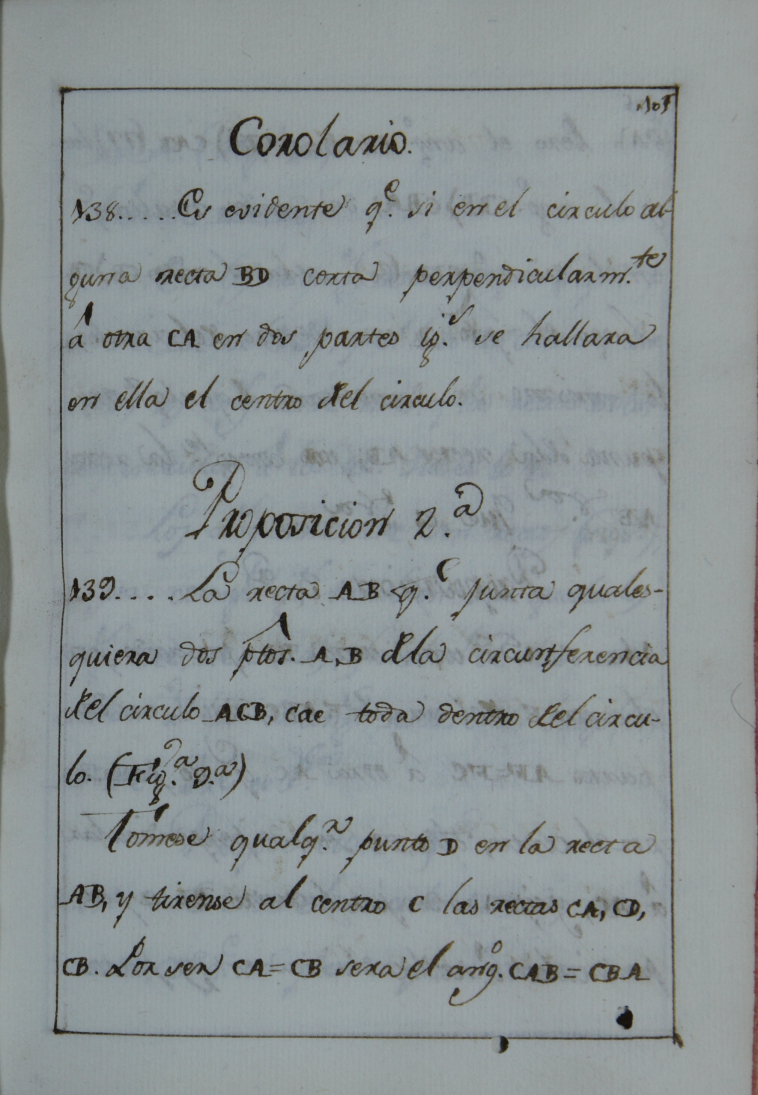 105
Corolario.
138.....Es evidente q.e si en el circulo al-
guna recta BD corta perpendicularm.te
â otra CA en dos partes ig.s se hallara
en ella el centro del circulo.
Proposicion 2.a
139.... La recta AB q.e junta quales-
quiera dos ptos. A, B dela circunferencia
del circulo ACB, cae toda dentro del circu-
lo. (Fig.a 9.a)
Tómese qualq.r punto D en la recta
AB, y tirense al centro C las rectas CA, CD,
CB. Por ser CA = CB sera el ang.o CAB = CBA